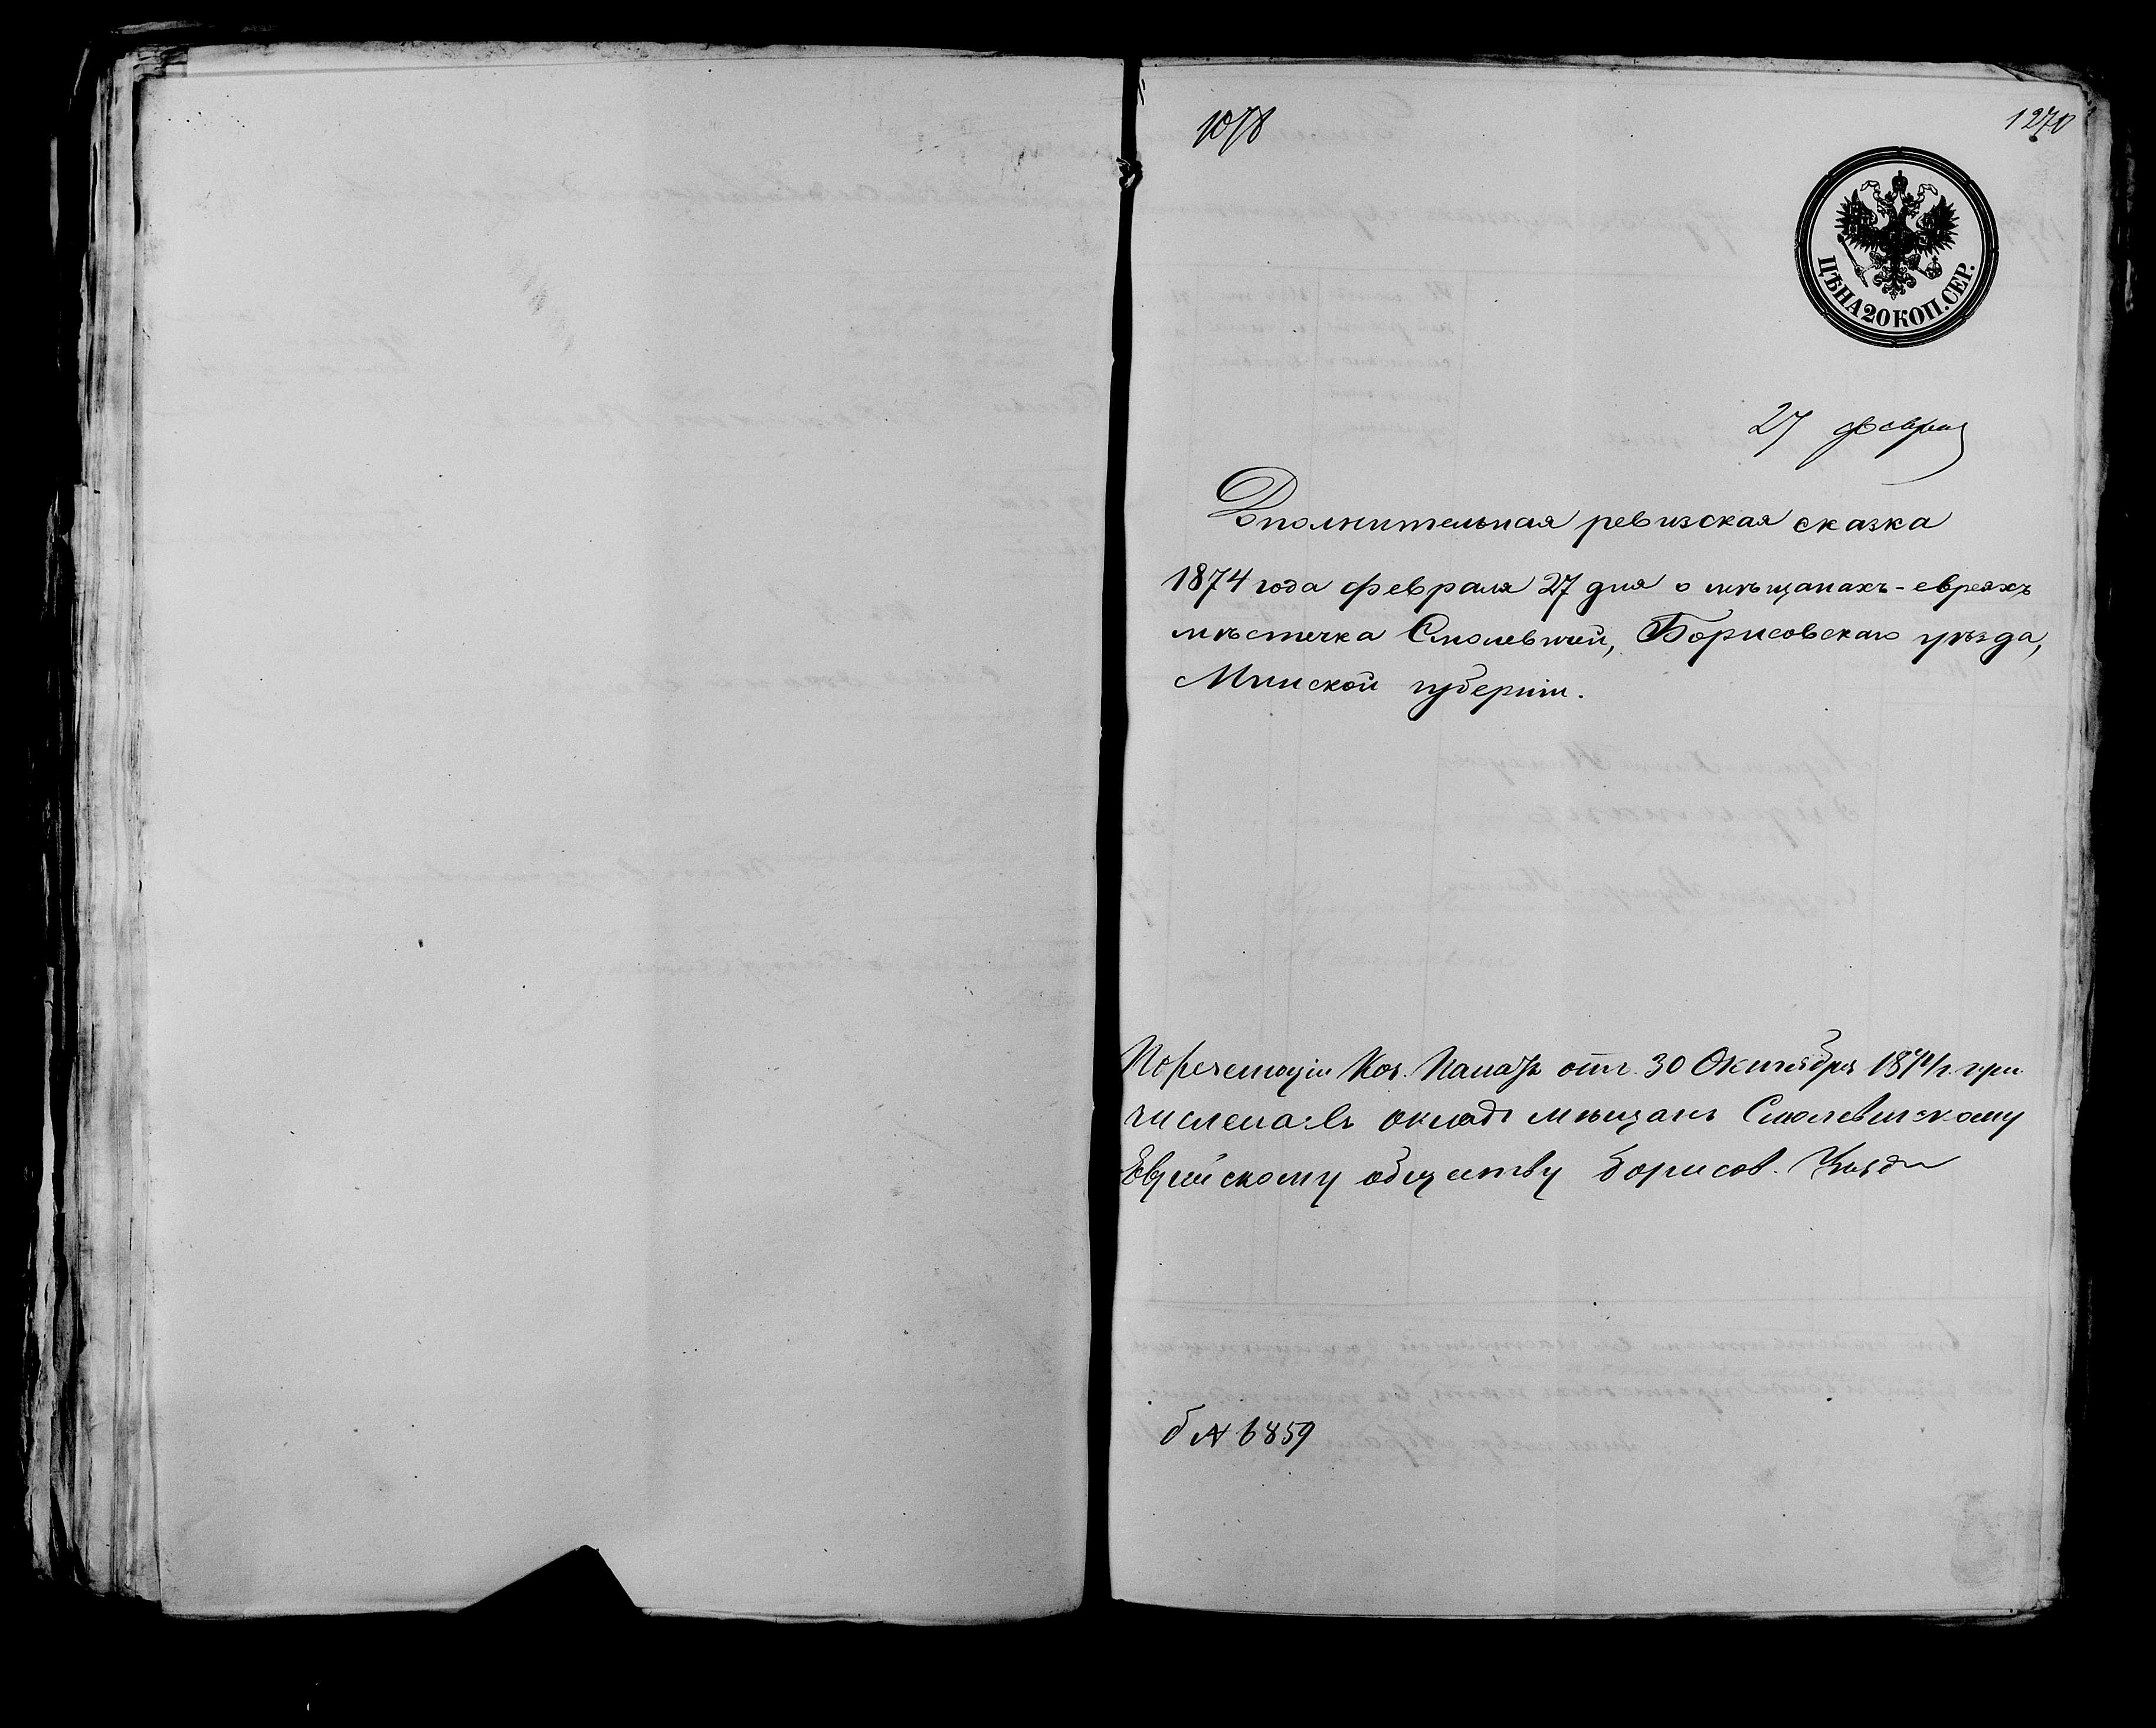 1078
1270
ЦѢНА 20 КОП. СЕР.
27 феврал
Дополнительная ревизская сказка
1874 года февраля 27 дня о мѣщанахъ-евреяхъ
мѣстечка Смолевичей, Борисовскаго уѣзда,
Минской губерніи.
По резолюціи Каз. Палаты отъ 30 Октября 1874 г. при
числена въ окладъ мѣщанъ Смолевичскому
Еврейскому обществу Борисов. Уѣзда
б № 6859